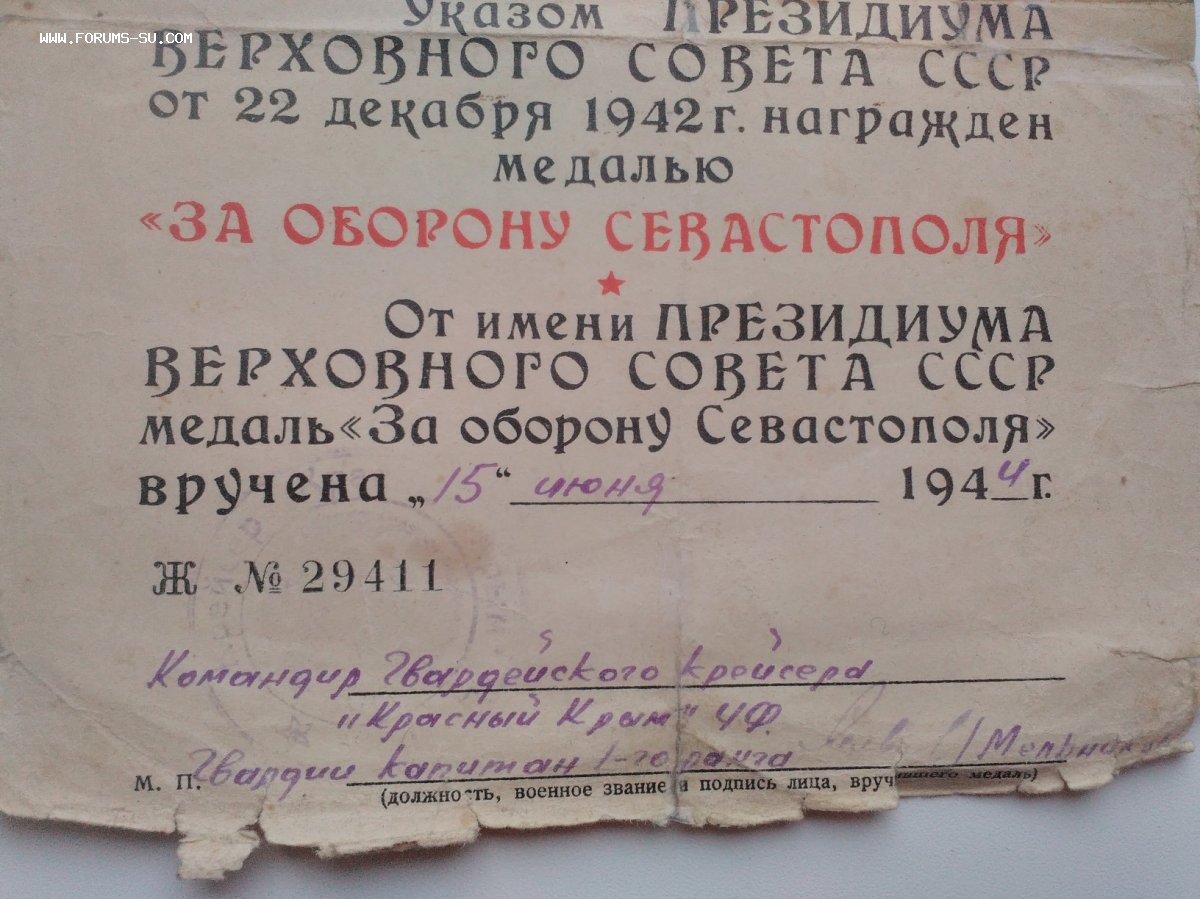 Указом ПРЕЗИДИУМА
www.forums-su.com
ВЕРХОВНОГО СОВЕТА СССР
от 22 декабря 1942 г. награжден
медалью
«ЗА ОБОРОНУ СЕВАСТОПОЛЯ»
От имени ПРЕЗИДИУМА
ВЕРХОВНОГО СОВЕТА СССР
медаль «За оборону Севастополя»
вручена „15“ июня 1944 г.
Ж № 29411
Командир Гвардейского крейсера
"Красный Крым" ЧФ.
Гвардии капитан 1-го ранга /Мельников
М. П.
(должность, военное звание и подпись лица, вручившего медаль)